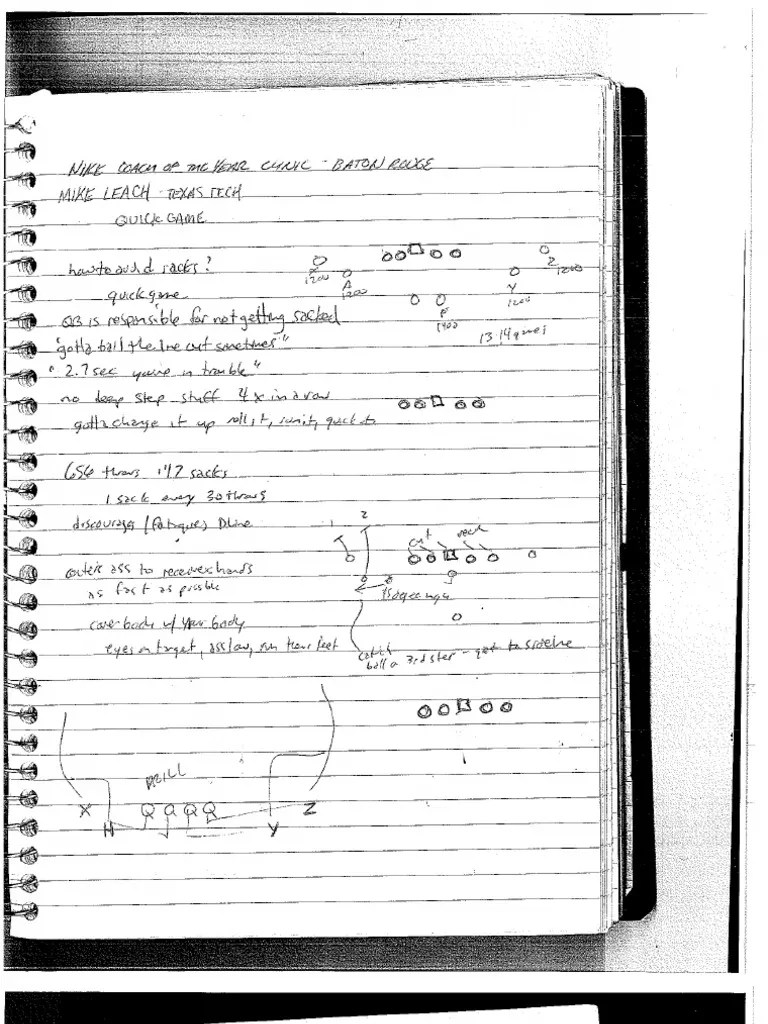 NIKE COACH OF THE YEAR CLINIC - BATON ROUGE
MIKE LEACH - TEXAS TECH
QUICK GAME
how to avoid sacks?
quick game
QB is responsible for not getting sacked
"gotta ball the line out sometimes"
"2.7 sec you're in trouble"
no deep step stuff 4x in a row
gotta change it up roll it, quick
X
1200
A
1200
Z
1200
Y
1200
F
1400
13-14 games
656 throws 47 sacks
1 sack every 30 throws
discourages (fatigues) D line
1
2
cut
ass to receivers hands
as fast as possible
cover body w/ your body
eyes on target, ass low, run their feet
catch
ball a 3rd step - get to sideline
DRILL
X
H
Q Q Q Q
Y
Z